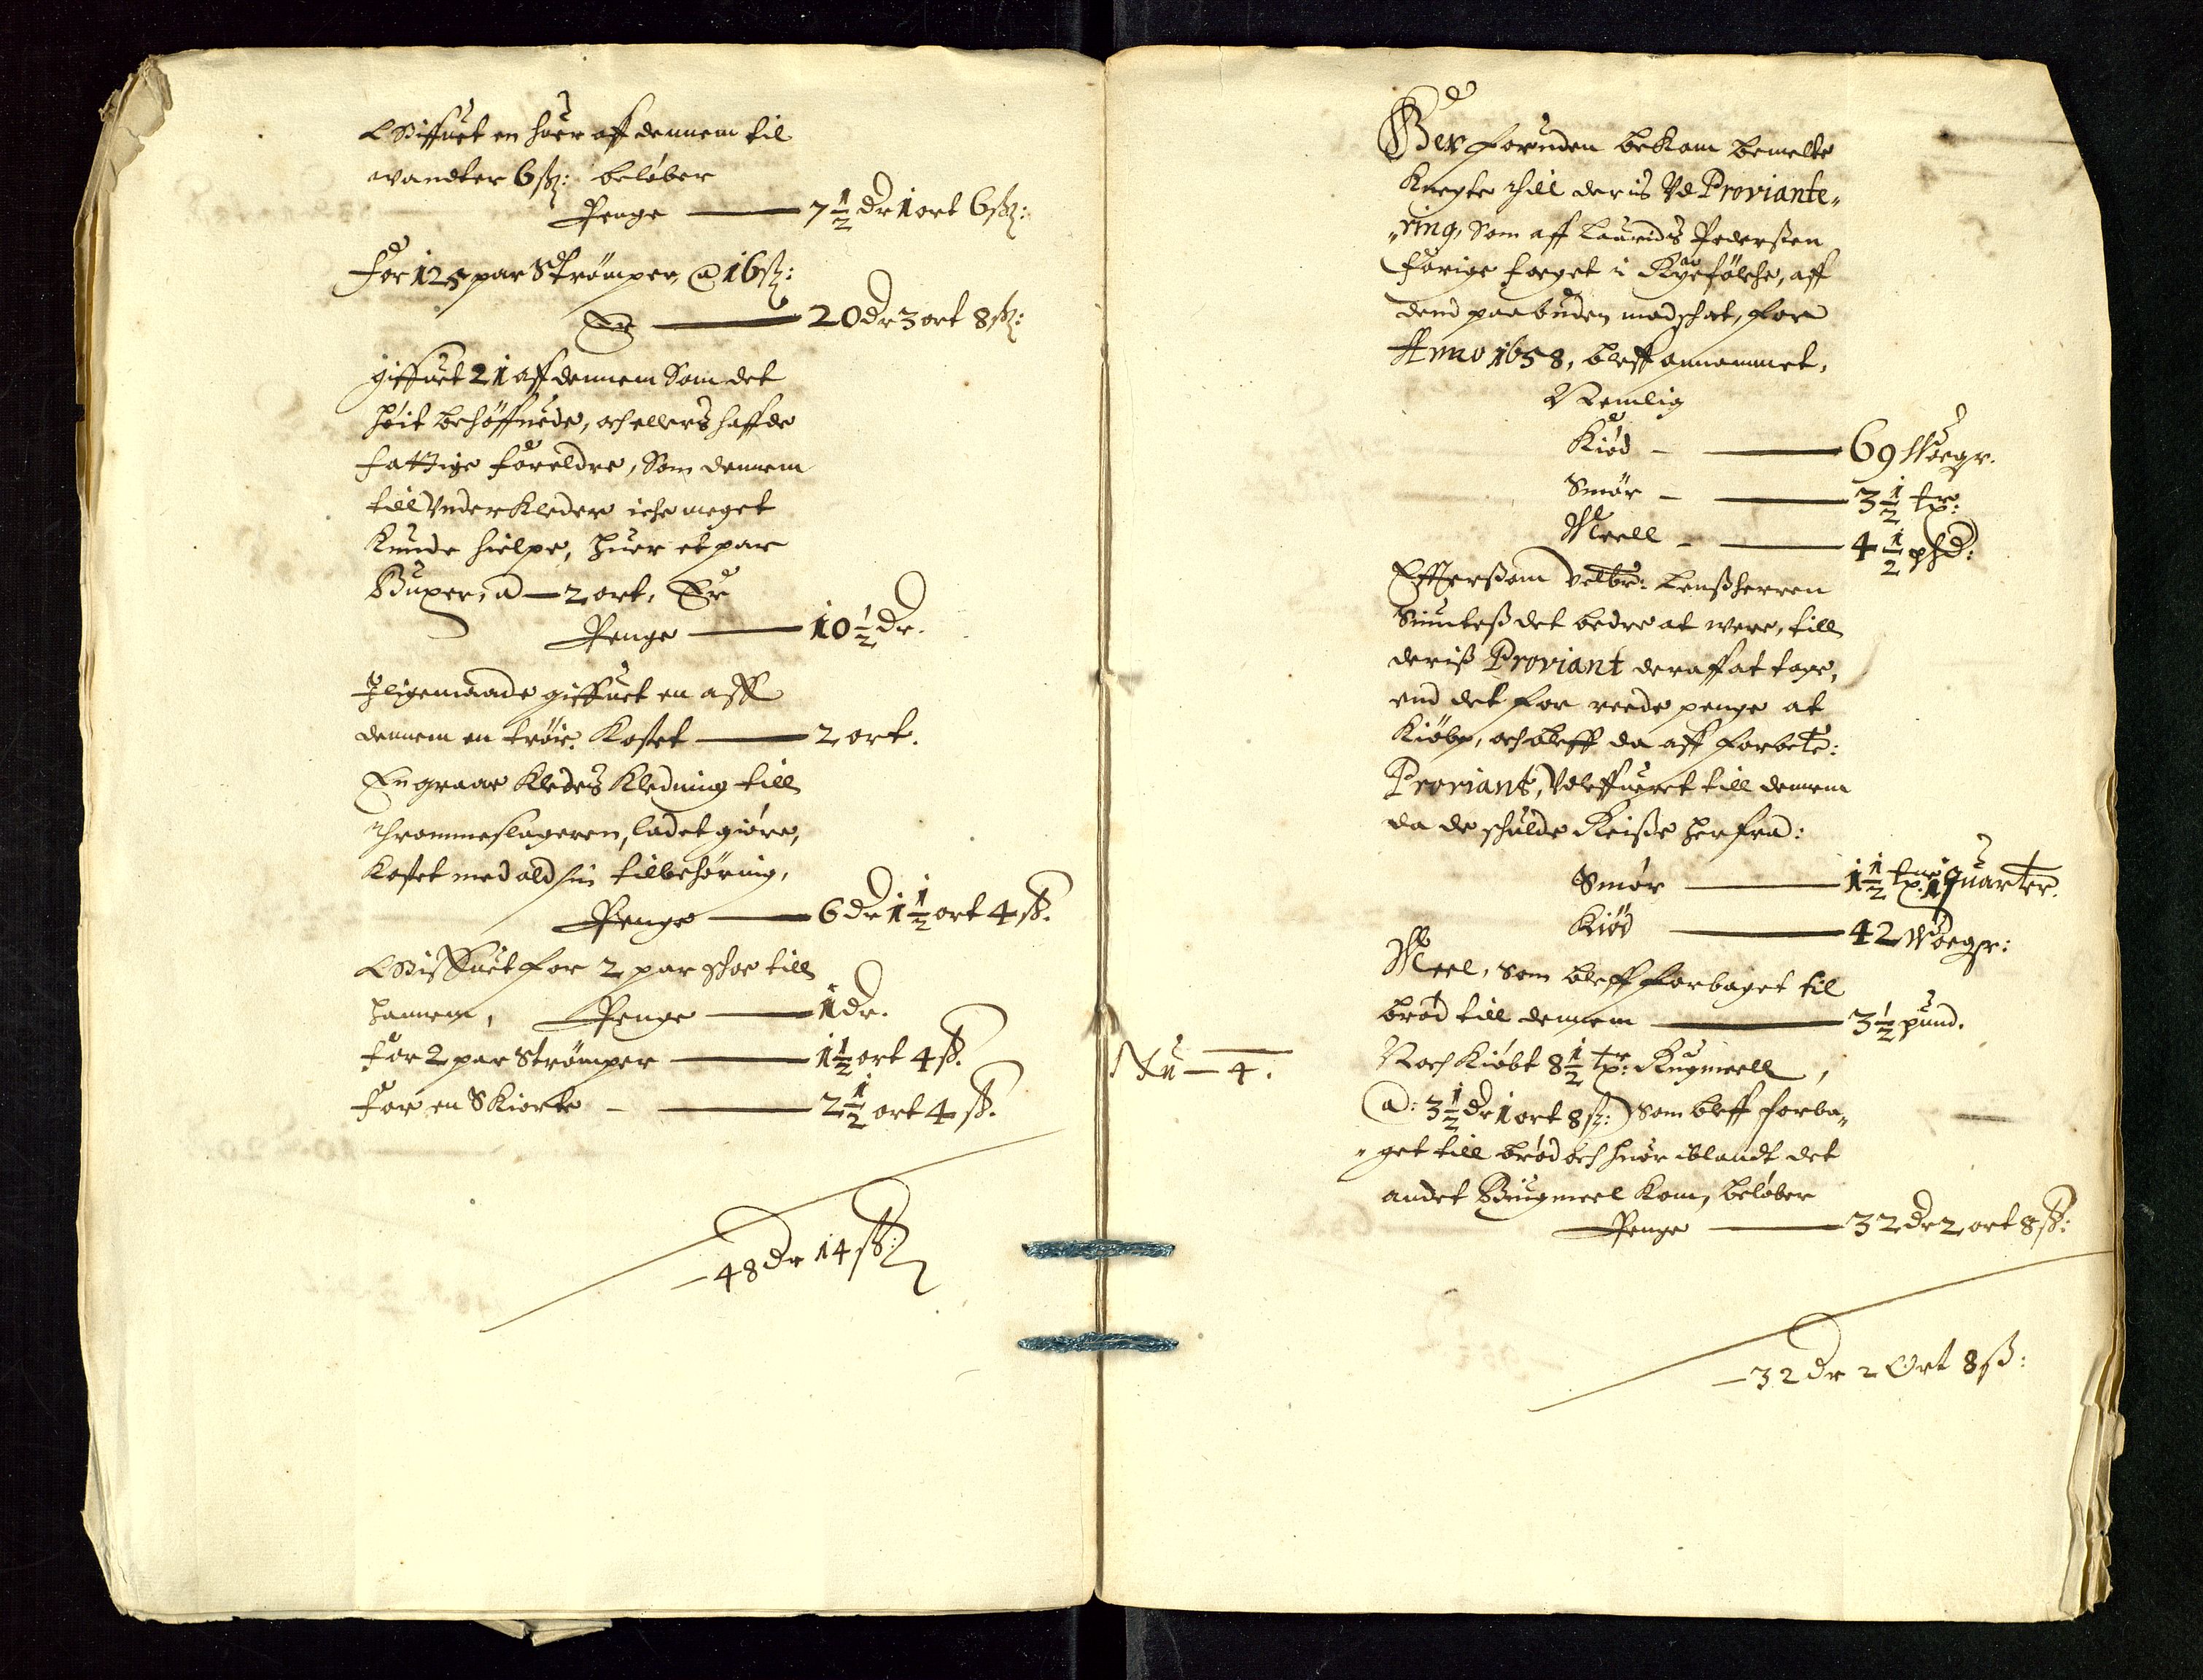 Giffuet en huer aff dennem til
wandter 6 sk: beløber
Penge — 7½ dr 1 ort 6 sk:
For 125 par Strømper, @ 16 sk:
Er — 20 dr 3 ort 8 sk:
giffuet 21 aff dennem Som det
høit behøffuede, och ellers haffde
fattige foreldre, Som dennem
till Vnderkleder iche meget
kunde hielpe, huer et par
Buxer, a — 2 ort, Er
Penge — 10½ dr.
Jligemaade giffuet en aff
dennem en trøie, kostet — 2 ort.
En graae kledes kledning till
thrommeslageren, ladet giøre,
kostet med ald sin tilbehøring,
Penge — 6 dr 1½ ort 4 ß.
Giffuet for 2 par schoe till
hannem, Penge — 1 dr.
For 2 par Strømper — 1½ ort 4 ß.
For en Skiorte — 2½ ort 4 ß.
— 48 dr 14 ß:
Der foruden bekom bemelte
knegte thill deris Vd Proviante„
„ring, Som aff Laurids Pederßen
forige foeget i Ryefølche, aff
dend paabuden madschat, for
Anno 1658, bleff annammet,
Nemlig
Kiød — 69 Woegr.
Smør — 3½ tr:
Meell — 4½ phd:
Efftersom velbr: Lenßherren
Siunteß det bedre at were, till
deriß Proviant deraff at tage,
end det for reede penge at
kiøbe, och bleff da aff forbete:
Proviant, Vdleffueret till dennem
da de schulde Reiße her fra:
Smør — 1½ tr: 1 quarter.
Kiød — 42 Woegr:
Meel, som bleff forbaget til
brød till dennem — 3½ pund.
Nu — 4.
Noch kiøbt 8½ tr: Rugmeell,
@: 3½ dr 1 ort 8 sk: Som bleff forba„
„get till brød och huor iblandt det
andet Biugmeel kom, beløber
Penge — 32 dr 2 ort 8 ß:
— 32 dr 2 Ort 8 ß: